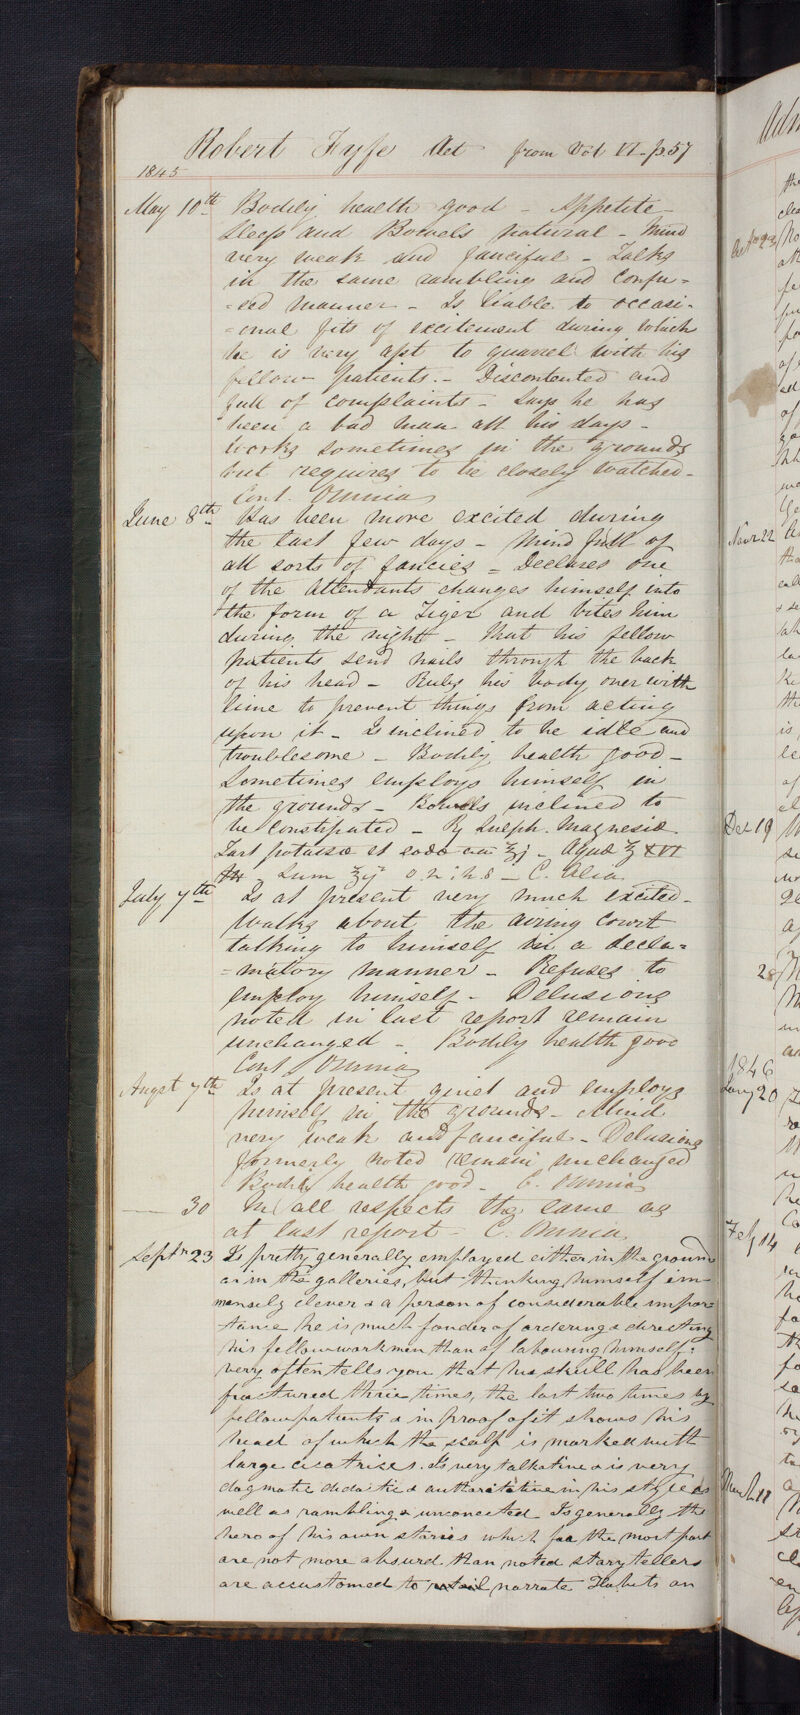 Robert Fyfe Aet from Vol VI - p57
1845
May 10th Bodily health good - Appetite
Sleep and Bowels natural - Mind
very weak and fanciful - Talks
in the same rambling and confu=
=sed manner - Is liable to occasi-
=onal fits of excitement during which
he is very apt to quarrel with his
fellow patients. - Discontented and
full of complaints - Says he has
been a bad man all his days -
Works sometimes in the grounds
but requires to be closely watched -
Cont. Omnia
June 8th Has been more excited during
the last few days - Mind full of
all sorts of fancies - Declares one
of the attendants changes himself into
the form of a Tiger and bites him
during the night - that his fellow
patients send nails through the back
of his head - Rubs his body over with
lime to prevent things from acting
upon it - Is inclined to be idle and
troublesome - Bodily health good -
Sometimes employs himself in
the grounds - Bowels inclined to
be constipated - Rx Sulph. Magnesiae
Tart potassae et sodae aa ℥j - Aquae ℥ XVI
Sum ℥ij o.n: h.s - C. Alia
July 7th Is at present very much excited -
Walks about the airing court
talking to himself in a decla=
=matory manner - Refuses to
employ himself - Delusions
noted in last report remain
unchanged - Bodily health good
Cont Omnia
Augst 7th Is at present quiet and employs
himself in the grounds - Mind
very weak and fanciful - Delusions
formerly noted remain unchanged
Bodily health good - C. Omnia
30 In all respects the same as
at last report - C. Omnia
Septr 23 Is pretty generally employed either in the ground
or in the galleries, but thinking himself im-
mensely clever & a person of considerable impor=
tance he is much fonder of ordering & directing
his fellow workmen than of labouring himself:
very often tells you that his skull has been
fractured thrice times, the last two times by
fellow patients & in proof of it shows his
head of which the scalp is marked with
large cicatrises. Is very talkative & is very
dogmatic didactic & authoritative in his style as
well as rambling & unconected Is generally the
hero of his own stories which for the most part
are not more absurd than noted story tellers
are accustomed to narrate Habits an
Novr 22
Decr 19
28
1846
Jany 20
Feby 14
March 11